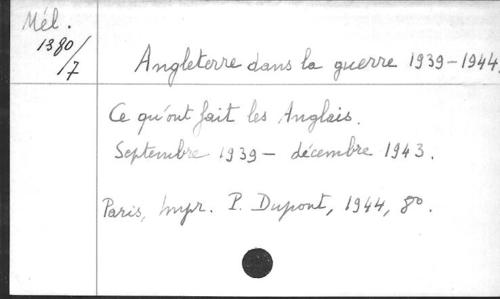 Mél.
1380/7
Angleterre dans la guerre 1939-1944.
Ce qu'ont fait les Anglais.
Septembre 1939 - décembre 1943.
Paris, Impr. P. Dupont, 1944, 8o.